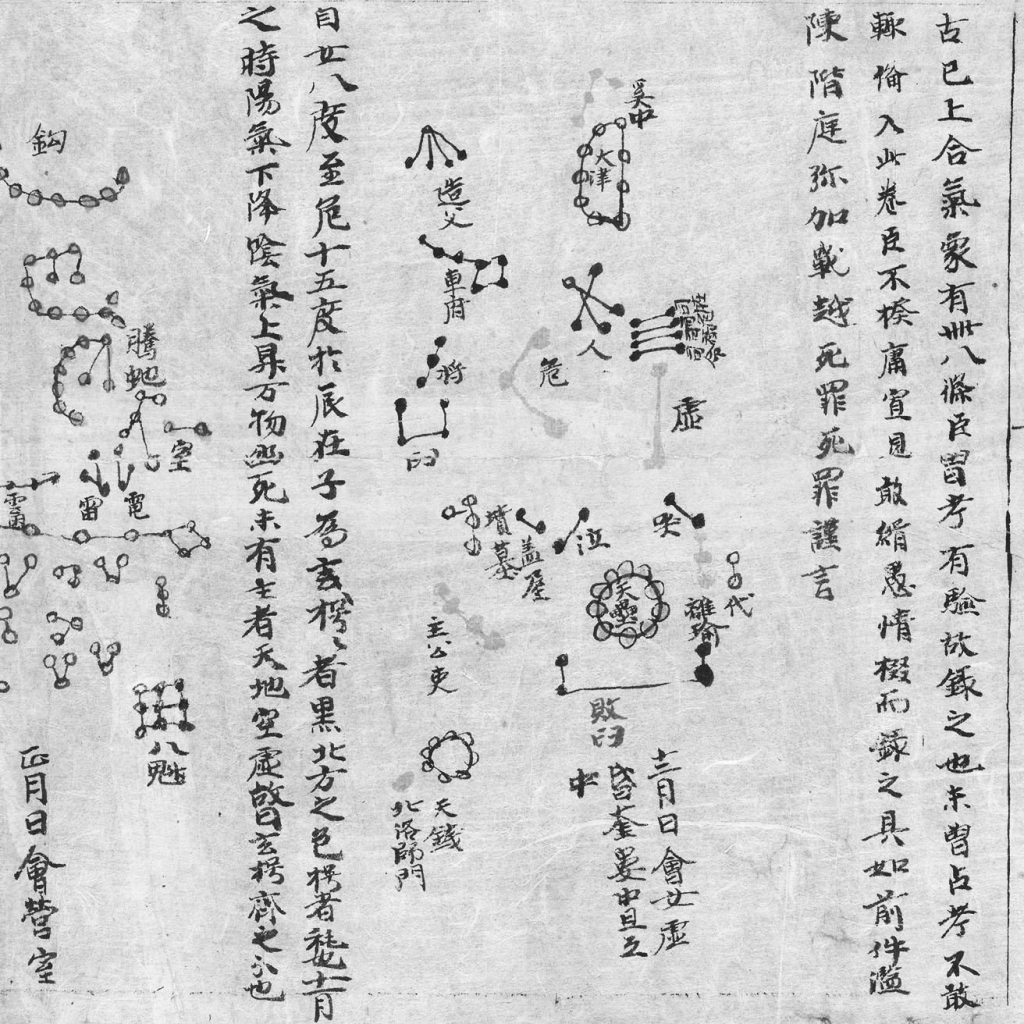 古已上合氣象有卌八條臣曾考有驗故錄之也未曾占考不敢
輒備入此卷臣不揆庸冝見敢緝愚情掇而錄之具如前件濫
陳階庭弥加戰越死罪死罪謹言
奚仲
天津
人
虛
危
造父
車府
將
臼
哭
泣
蓋屋
墳墓
天壘
離瑜
代
敗臼
主公吏
天錢
北落師門
十二月日會女虛
昏奎婁中旦互
中
自女八度至危十五度於辰在子為玄枵枵者黑北方之色枵者秏也十一月
之時陽氣下降陰氣上昇万物幽死未有生者天地空虛瞽玄枵齊之分也
鈎
騰虵
室
電
雷
八魁
正月日會營室